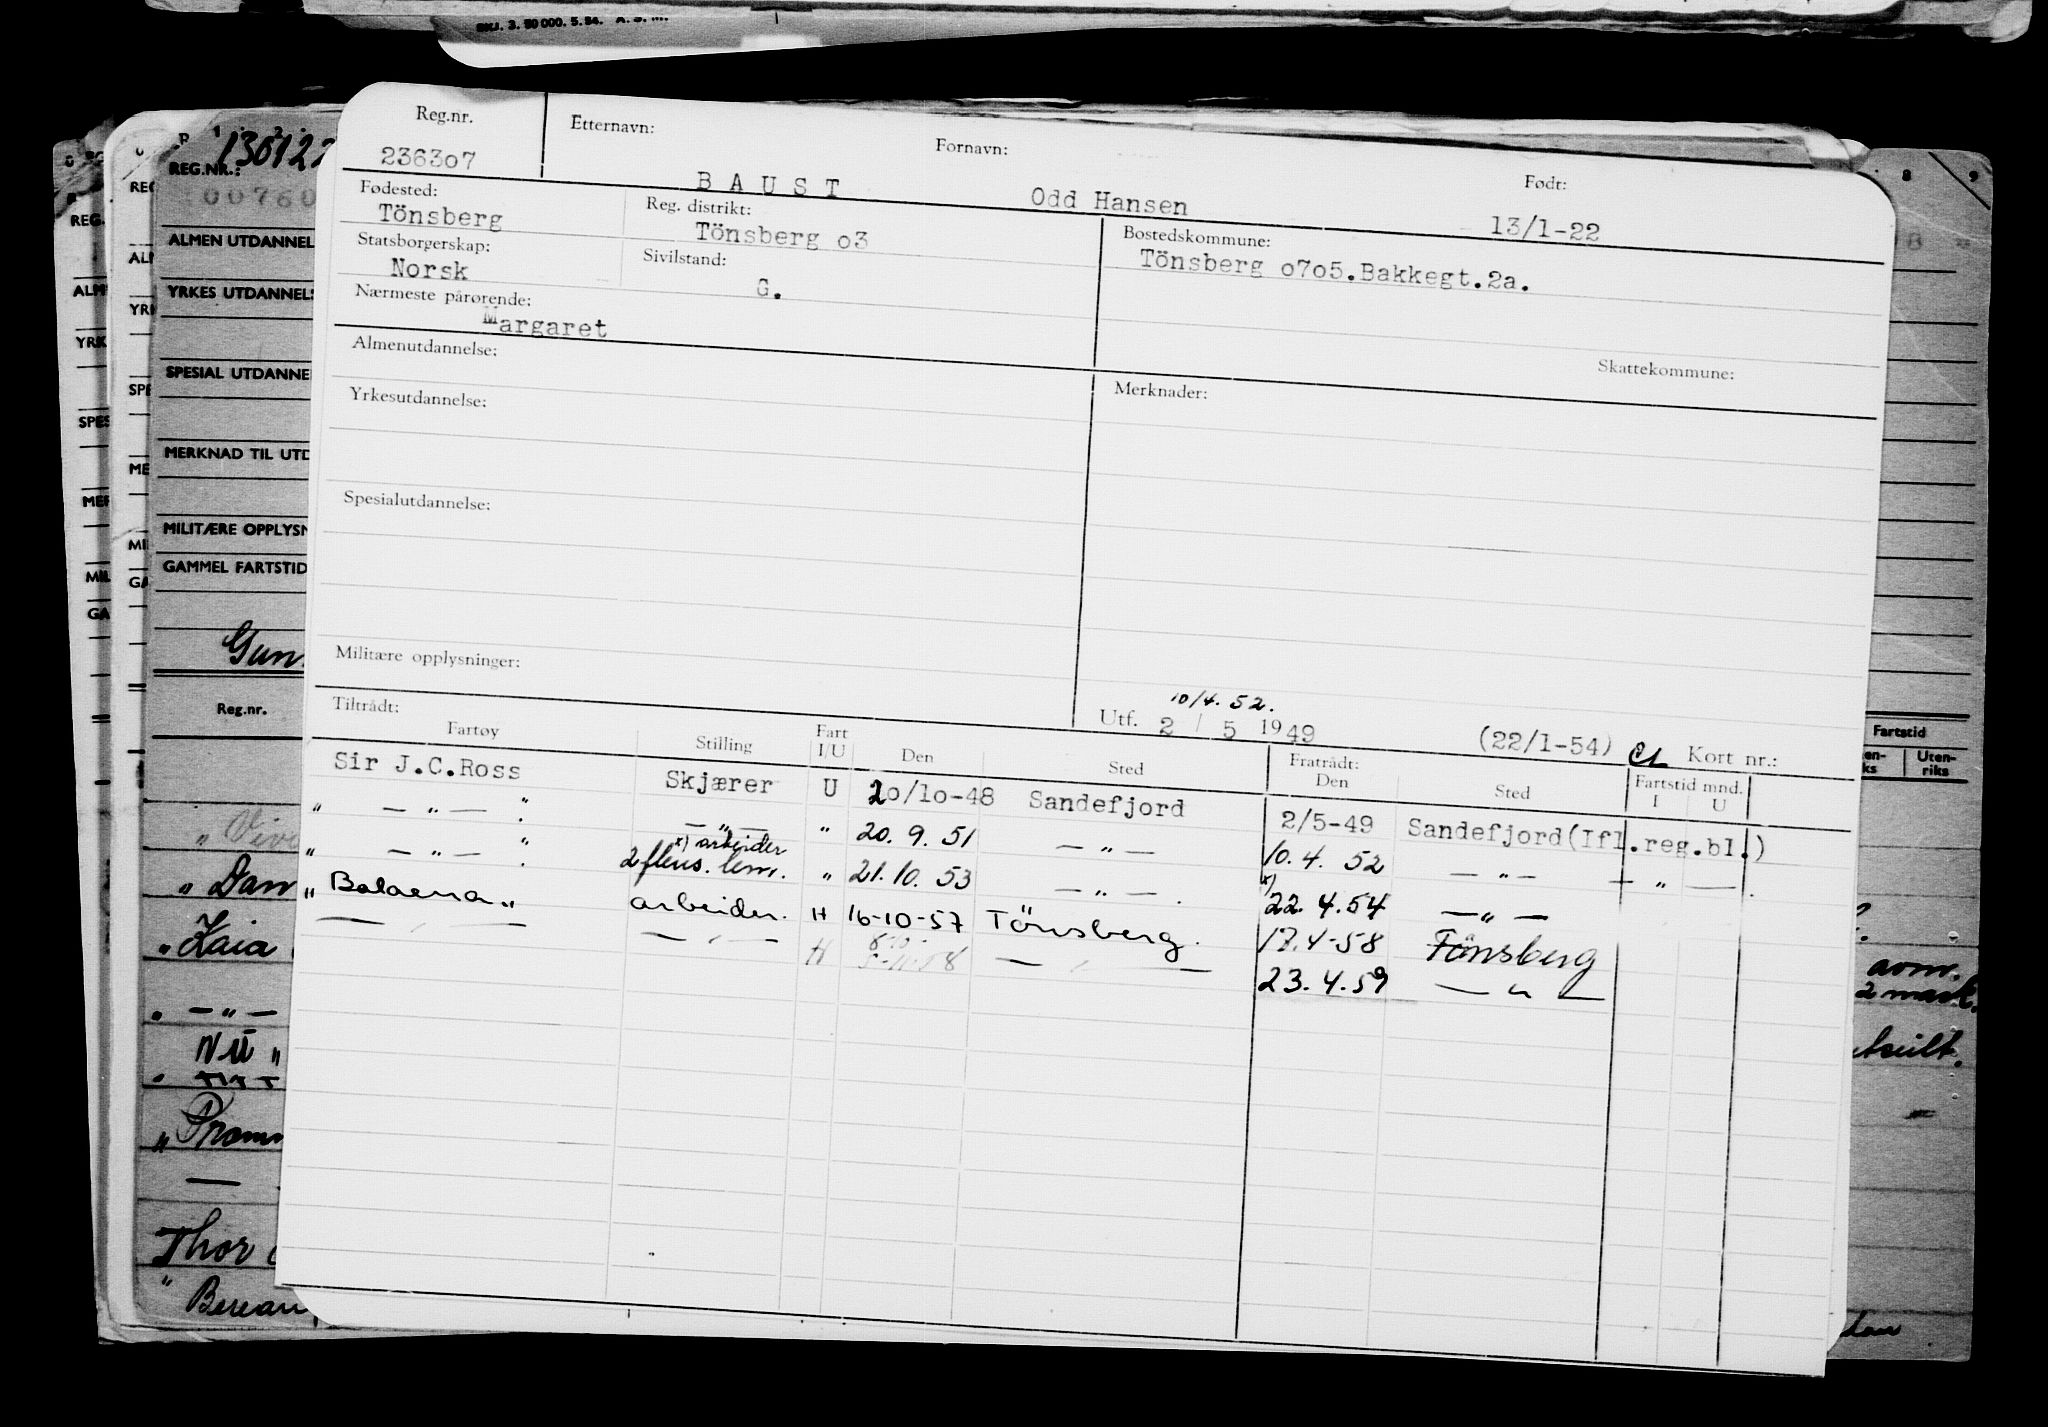 SKJ. 3. 50 000. 5. 54.
Reg.nr. Etternavn: Fornavn: Født:
236307 B A U S T Odd Hansen 13/1-22
Fødested: Reg. distrikt: Bostedskommune:
Tönsberg Tönsberg o3 Tönsberg o7o5.Bakkegt.2a.
Statsborgerskap: Sivilstand:
Norsk G.
Nærmeste pårørende:
Margaret
Skattekommune:
Almenutdannelse: Merknader:
Yrkesutdannelse:
Spesialutdannelse:
Militære opplysninger:
10/4. 52.
Utf. 2 / 5 1949 (22/1-54) Kort nr.:
Tiltrådt: Fratrådt: Fartstid mnd.
Fartøy Stilling Fart I/U Den Sted Den Sted I U
Sir J.C.Ross Skjærer U 20/10-48 Sandefjord 2/5-49 Sandefjord(Ifl.reg.bl.)
" — " — " — " — " 20. 9. 51 — " — 10. 4. 52 — " — — " — .
x) arbeider
" — " — " 2 flens. lem. " 21. 10. 53 — " — . x) 22. 4. 54 — " —
" Balaena " arbeider. H 16-10-57 Tönsberg. 17.4-58 Tønsberg
— " — — " — H — " — 23. 4. 59 — " —
130122
REG.NR.:
00760
ALMEN UTDANNEL
YRKES UTDANNELS
SPESIAL UTDANNE
MERKNAD TIL UTD
MILITÆRE OPPLYSN
GAMMEL FARTSTID
Gun
Reg.nr.
" Vive
" Dan
" Kaia
" — " —
NU "
" Prom
—
Thor
" Berean
8 9
Fartstid
Uten-
riks
avm.
2 mask.